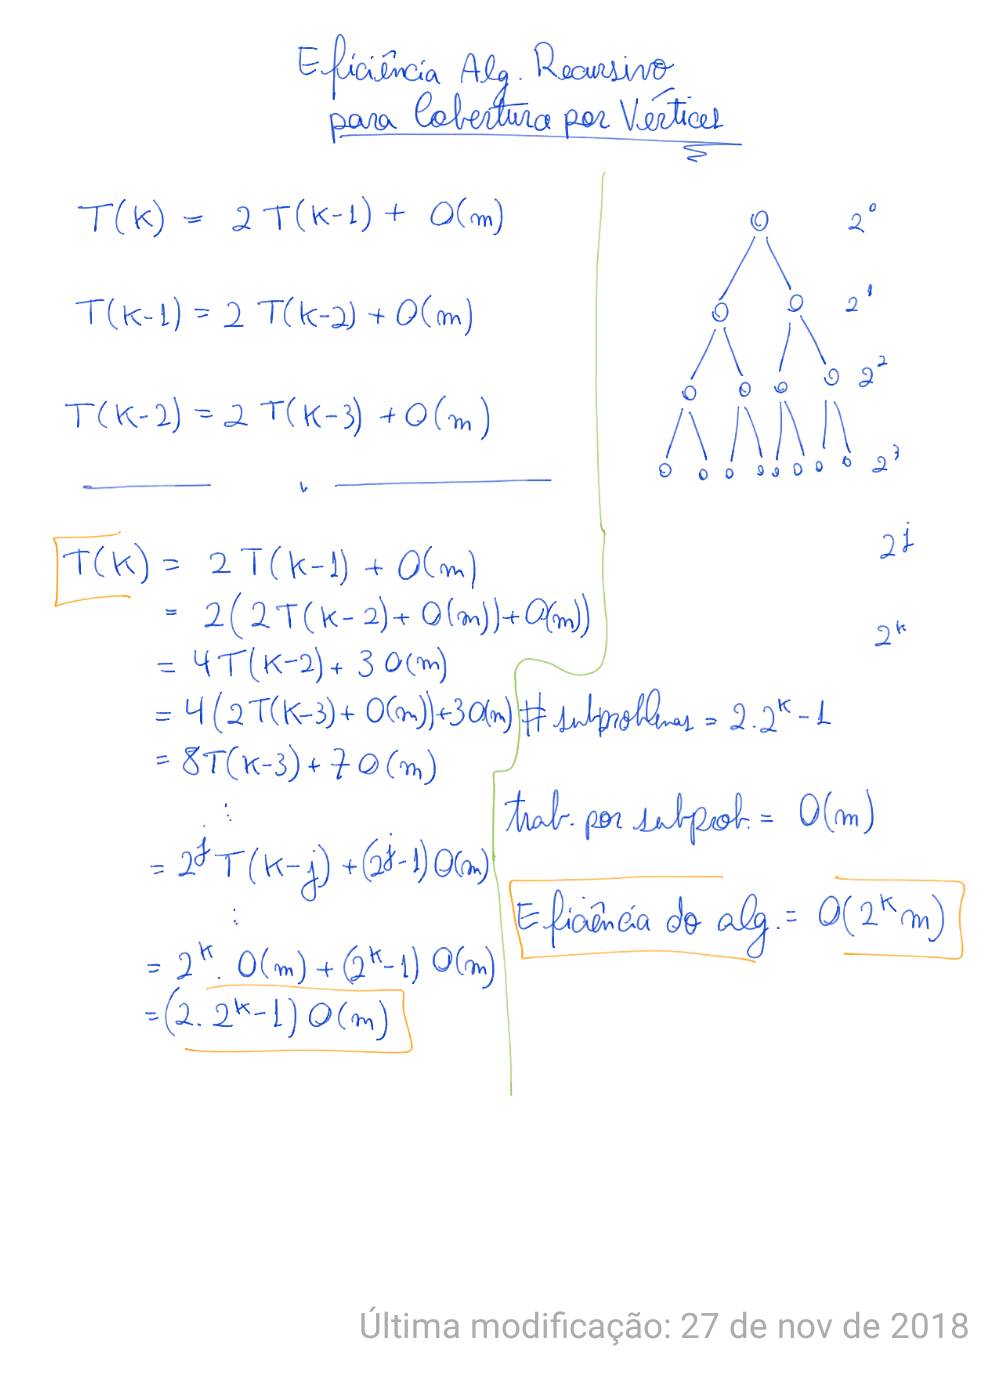 Eficiência Alg. Recursivo
para Cobertura por Vértices
T(k) = 2T(k-1) + O(m)
T(k-1) = 2 T(k-2) + O(m)
T(k-2) = 2 T(k-3) + O(m)
T(k) = 2T(k-1) + O(m)
= 2(2T(k-2) + O(m)) + O(m))
= 4T(k-2) + 3 O(m)
= 4(2T(k-3) + O(m)) + 3O(m)
= 8T(k-3) + 7 O(m)
⋮
= 2^j T(k-j) + (2^j-1) O(m)
⋮
= 2^k. O(m) + (2^k-1) O(m)
= (2. 2^k-1) O(m)
2^0
2^1
2^2
2^3
2^j
2^k
# subproblemas = 2.2^k-1
trab. por subprob. = O(m)
Eficiência do alg. = O(2^k m)
Última modificação: 27 de nov de 2018